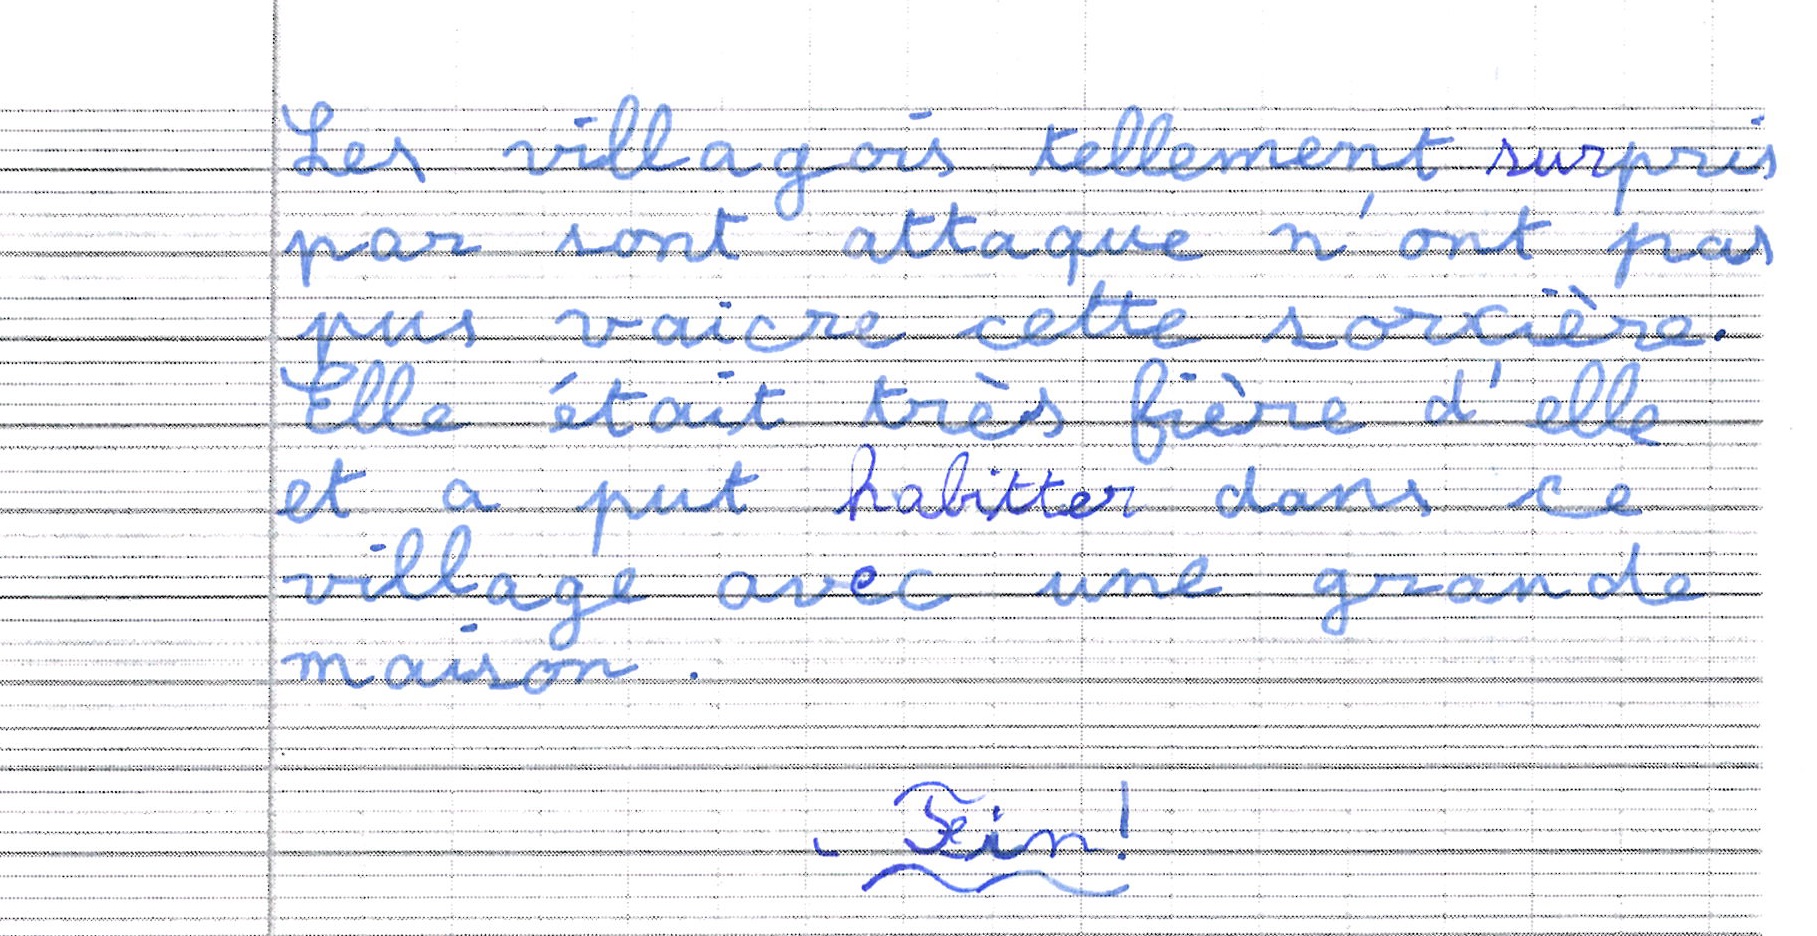 Les villagois tellement surpris
par sont attaque n'ont pas
pus vaicre cette sorcière.
Elle était très fière d'elle
et a put habitter dans ce
village avec une grande
maison.
Fin!